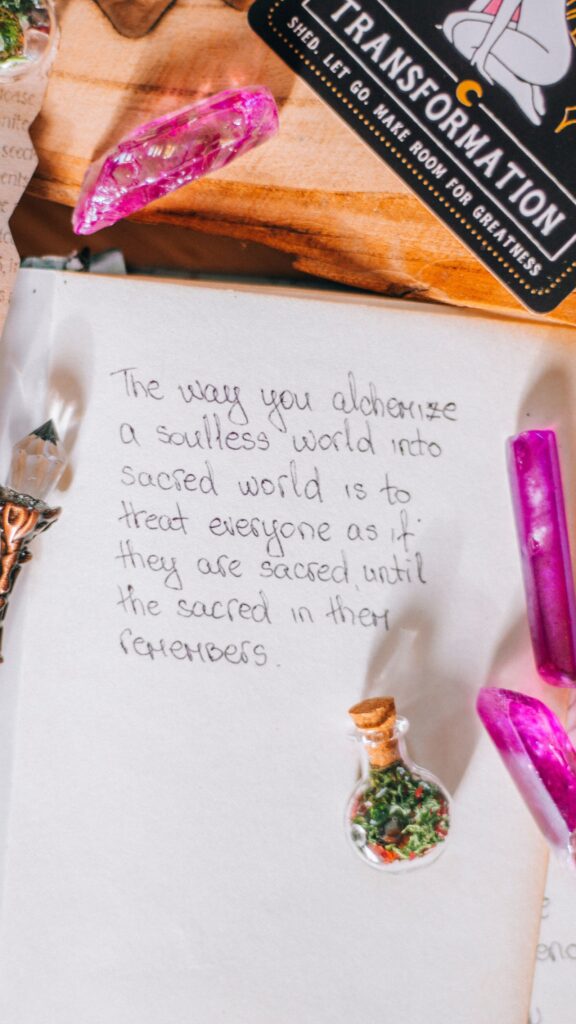 TRANSFORMATION
SHED. LET GO. MAKE ROOM FOR GREATNESS
The way you alchemize
a soulless world into
sacred world is to
treat everyone as if
they are sacred until
the sacred in them
remembers.